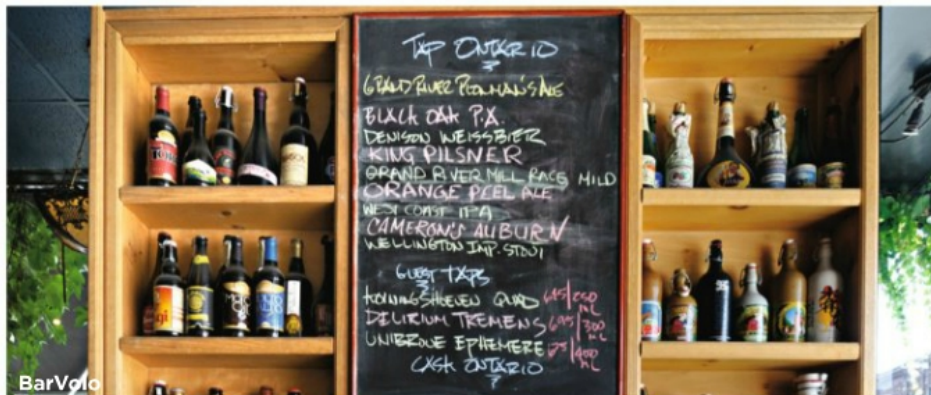 TAP ONTARIO
GRAND RIVER PLOWMAN'S ALE
BLACK OAK P.A.
DENISON WEISSBIER
KING PILSNER
GRAND RIVER MILL RACE MILD
ORANGE PEEL ALE
WEST COAST IPA
CAMERON'S AUBURN
WELLINGTON IMP. STOUT
GUEST TAPS
KONINGSHOEVEN QUAD 6.95/250 ML
DELIRIUM TREMENS 6.95/300 ML
UNIBROUE EPHEMERE /400 ML
CASK ONTARIO
BarVolo